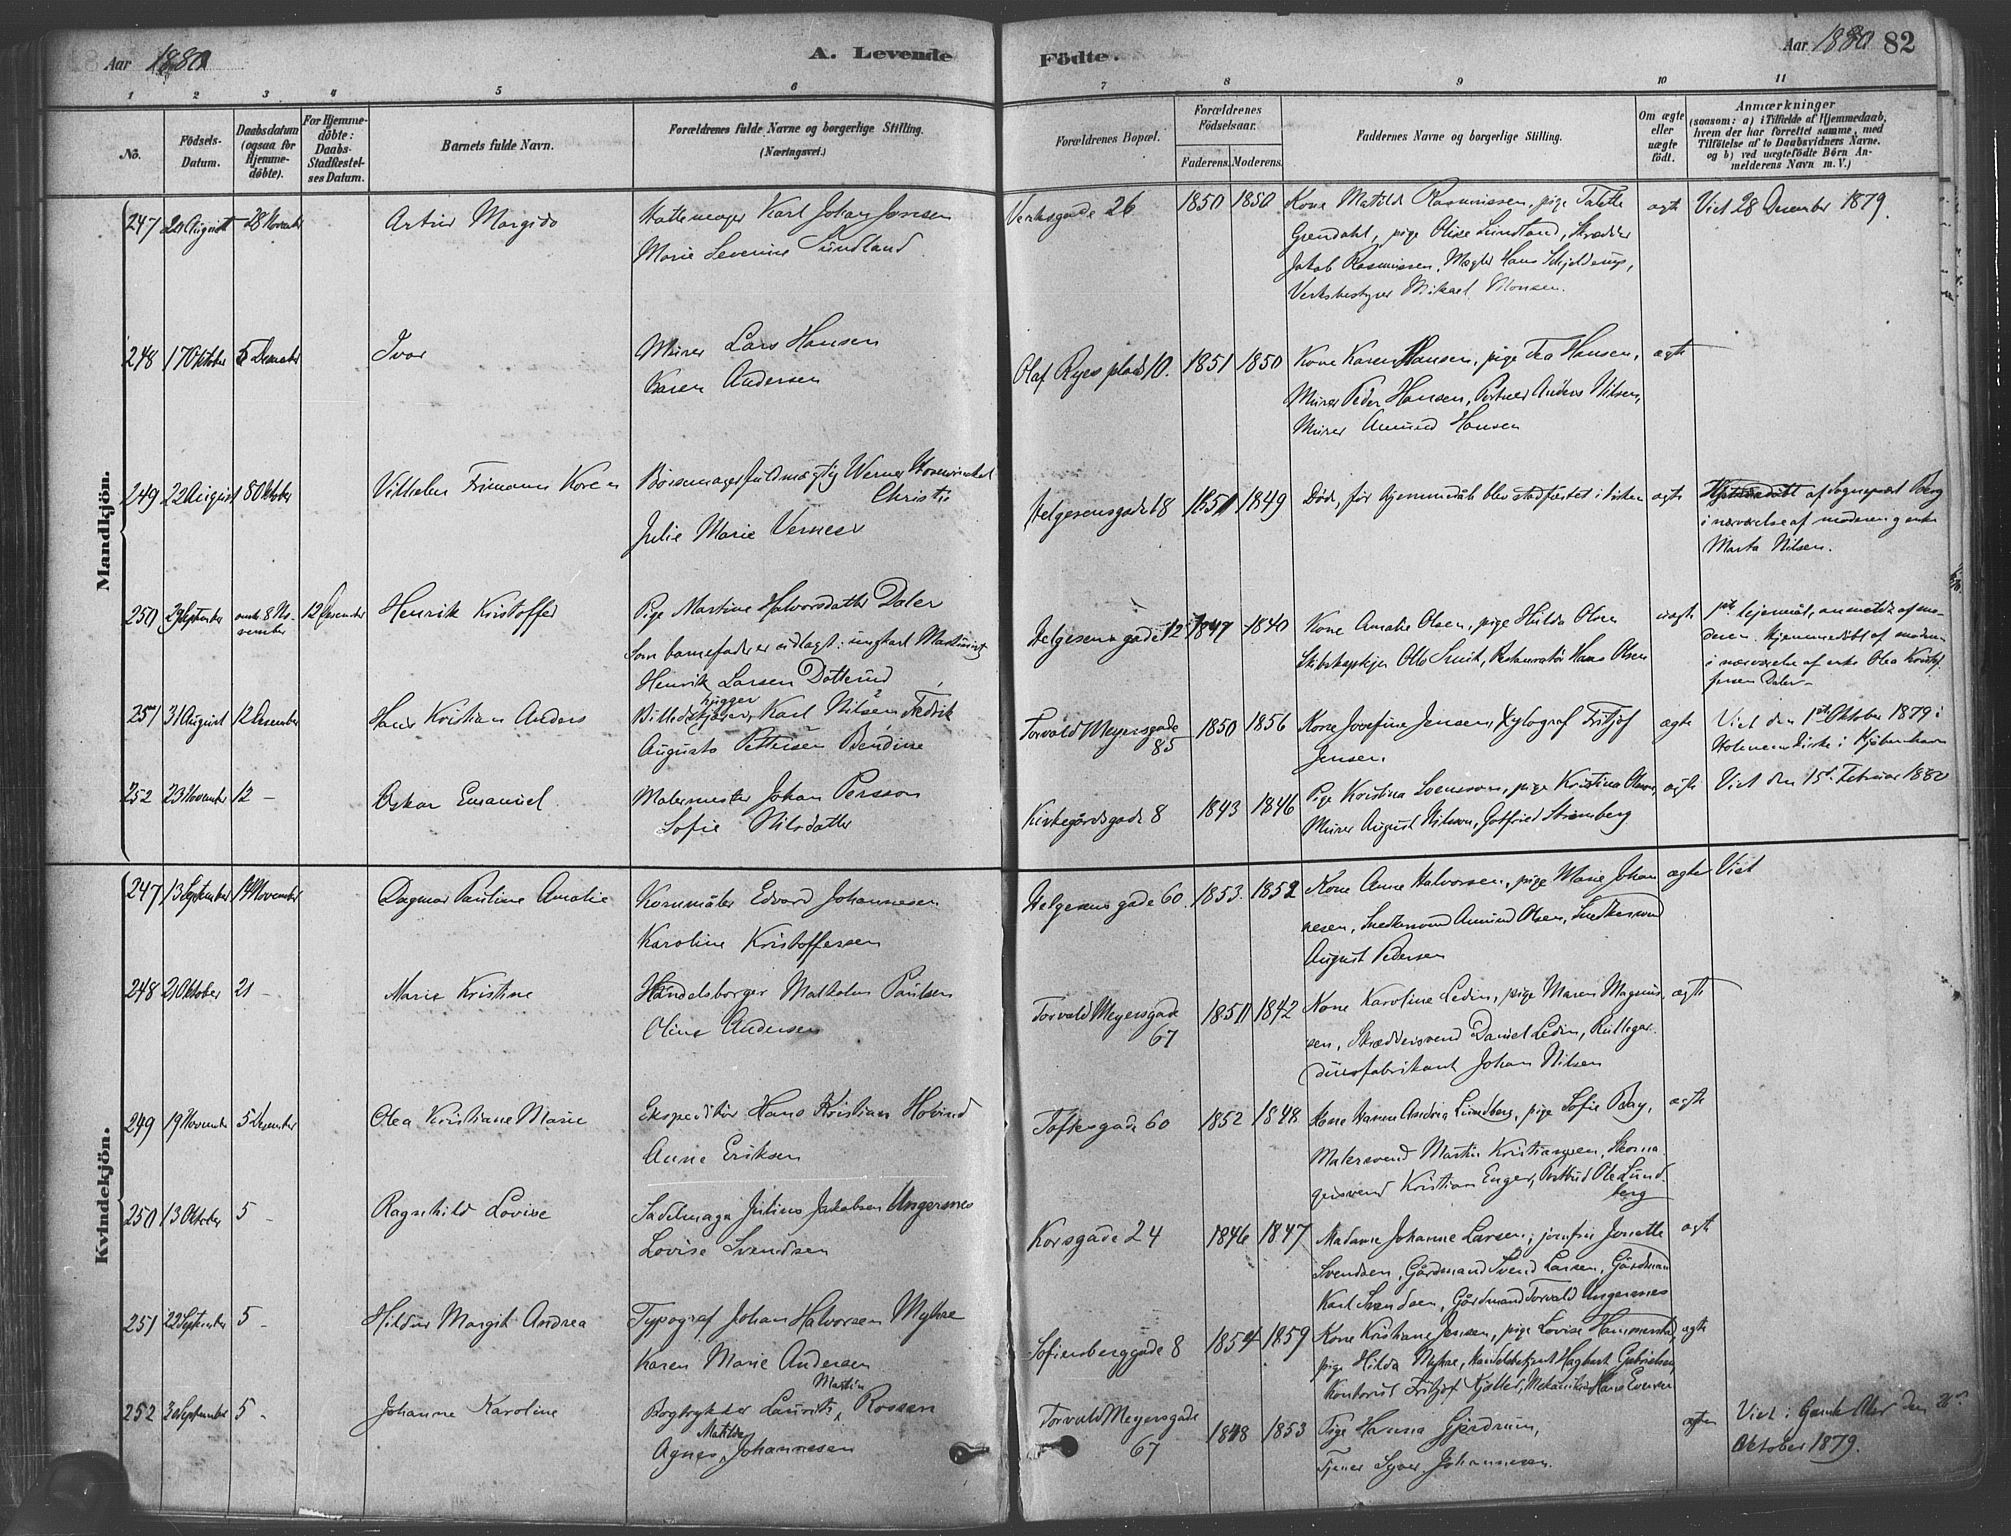 Aar 1880
A. Levende
Födte.
Aar 1880
82
1 2 3 4 5 6 7 8 9 10 11
No.
Födsels-
Datum.
Daabsdatum
(ogsaa for
Hjemme-
döbte).
For Hjemme-
döbte:
Daabs-
Stadfæstel-
ses Datum.
Barnets fulde Navn.
Forældrenes fulde Navne og borgerlige Stilling.
(Næringsvei.)
Forældrenes Bopæl.
Forældrenes
Födselsaar.
Faderens. Moderens.
Faddernes Navne og borgerlige Stilling.
Om ægte
eller
uægte
födt.
Anmærkninger
(saasom: a) i Tilfælde af Hjemmedaab,
hvem der har forrettet samme, med
Tilföielse af to Daabsvidners Navne.
og b) ved uægtefödte Börn An-
melderens Navn m. V.)
Mandkjön.
247 August 28 November
Artur Margido
Hattemager Karl Johan Jansen
Marie Severine Sundland
Verksgade 26
1850 1850
Kone Matild Rasmussen, pige Talette
Grendahl, pige Oline Sundland, Skrædder
Jakob Rasmussen, Mægler Hans Schjelderup,
Verksbestyrer Mikael Monsen.
ægte
Viet 28 December 1879.
248 17 Oktober 5 Desember
Ivar
Murer Lars Hansen
Karen Andersen
Olaf Ryes plads 10.
1851 1850
Kone Karen Hansen, pige Tea Hansen,
Murer Peder Hansen, Portner Anders Nilsen,
Murer Amund Hansen
ægte
249 22 August 8 Oktober
Vilhelm Frimann Koren
Börsemagerfuldmægtig Werner Hosewinckel
Christie
Julie Marie
Helgesensgade 18
1851 1849
Död, för hjemmedåb blev stadfæstet i kirken
ægte
Hjemmedöbt af Sognepræst Berg
i nærværelse af moderen og enke
Marta Nilsen.
250 29 September 8 No-
vember 12 Desember
Henrik Kristoffer
Pige Martine Halvorsdatter Daler
Som barnefader er udlagt: ungkarl Martinius
Henrik Larsen Dotterud
Helgesens gade 12
1847 1840
Kone Amalie Olsen, pige Hulda Olsen
Otto Smit, Restauratör Hans Olsen
uægte
lejermål, anmeldt af mo-
deren. Hjemmedöbt af
i nærværelse af enke Olea Kristof-
fersen Daler
251 31 August 12 Desember
Hans Kristian Anders
hugger
Billedskjærer, Karl Nilsen Fedrik
Augusta Pettersen Bendine
Torvald Meyersgade
85
1850 1856
Kone Josefine Jensen, Xylograf Fritjof
Jensen.
ægte
Viet den 1ste Oktober 1879 i
Holmens kirke i Kjöbenhavn
252 23 November 12 –
Oskar Emanuel
Malermester Johan Persson
Sofie Nilsdatter
Kirkegårdsgade 8
1843 1846
Pige Kristina Svensson, pige Kristina Olsson,
Murer August Nilsson, Gotfried Strömberg
ægte
Viet den 15de Februar 1880
Kvindekjön.
247 13 September 14 November
Dagmar Pauline Amalie
Kornmåler Edvard Johannesen
Karoline Kristoffersen
Helgesens gade 60.
1853. 1852
Kone Anne Halvorsen, pige Marie Johan-
nesen, Snedkersvend Amund Olsen, Snedkersvend
August Pedersen
ægte
Viet
248 21 Oktober 21 –
Marie Kristine
Handelsborger Malkolm Paulsen
Oline Andersen
Torvald Meyersgade
67
1850 1842
Kone Karoline Ledin, pige Maren Magnus-
sen, Skræddersvend Daniel Ledin, Rullegar-
dinsfabrikant Johan Nilsen
ægte
249 19 November 5 Desember
Olea Kristiane Marie
Ekspeditör Hans Kristian Hovind
Anne Eriksen
Toftesgade 60
1852 1848
Kone Karen Andrea Lundberg, pige Sofie Bay,
Malersvend Martin Kristiansen, Skoma-
gersvend Kristian Enger, Ole Lund-
berg
ægte
250 13 Oktober 5 –
Ragnhild Lovise
Sadelmager Julius Jakobsen Ungersnes
Lovise Svendsen
Korsgade 24
1846 1847
Madame Johanne Larsen, jomfru Jonette
Svendsen, Gårdmand Svend Larsen, Gårdman
Karl Svendsen, Gårdmand Torvald Ungersnes
ægte
251 22 September 5 –
Hildur Margit Andrea
Typograf Johan Halvorsen Myhre
Karen Marie Andersen
Sofienberggade 8
1854 1859
Kone Kristiane Jensen, pige Lovise Hammerstad,
pige Hilda Myhre, Handelsbetjent Hagbart Gabrielsen,
Kontorist Fritjof Kjöller, Mekaniker Hans Evensen
ægte
252 2 September 5 –
Johanne Karoline
Martin
Bogtrykker Laurits Rossen
Matilde
Agnes Johannesen
Torvald Meyersgade
67
1848 1853
Pige Hanna Gjerdrum,
Tjener Syver Johannesen.
ægte
Viet i Gamle Aker den
Oktober 1879.